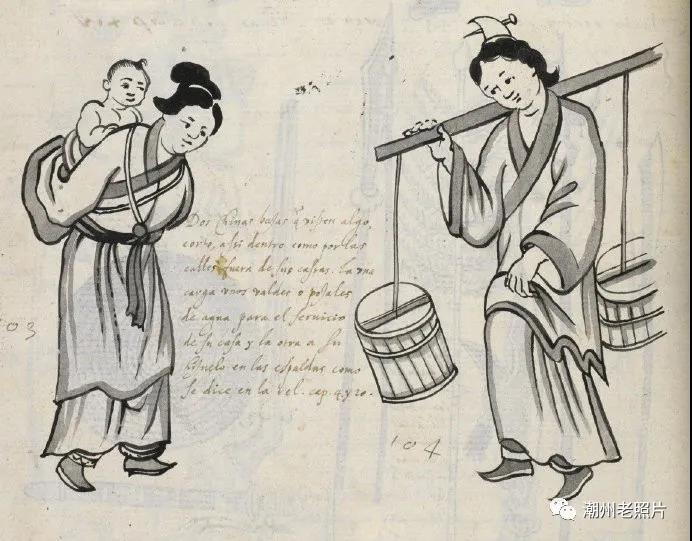 103
Dos Chinas basas q̃ visten algo
corto, assi dentro como por las
calles fuera de sus casas. La una
carga unos valdes o potales
de agua para el servicio
de su casa y la otra a su
en las espaldas como
se dice en la Rel. cap. 4 y 20.
104
潮州老照片